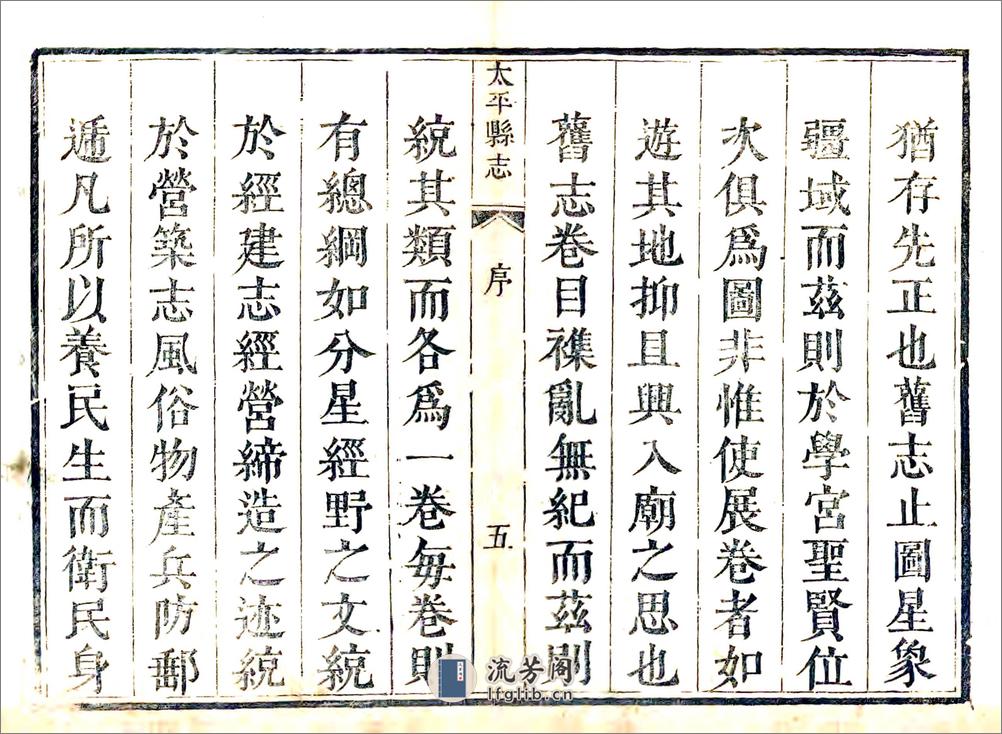 猶存先正也舊志止圖星象
疆域而茲則於學宮聖賢位
次俱爲圖非惟使展卷者如
遊其地抑且興入廟之思也
舊志卷目襍亂無紀而茲則
太平縣志
序
五
統其類而各爲一卷每卷則
有總綱如分星經野之文統
於經建志經營締造之迹統
於營築志風俗物產兵防郵
遞凡所以養民生而衛民身
流芳阁
lfglib.cn